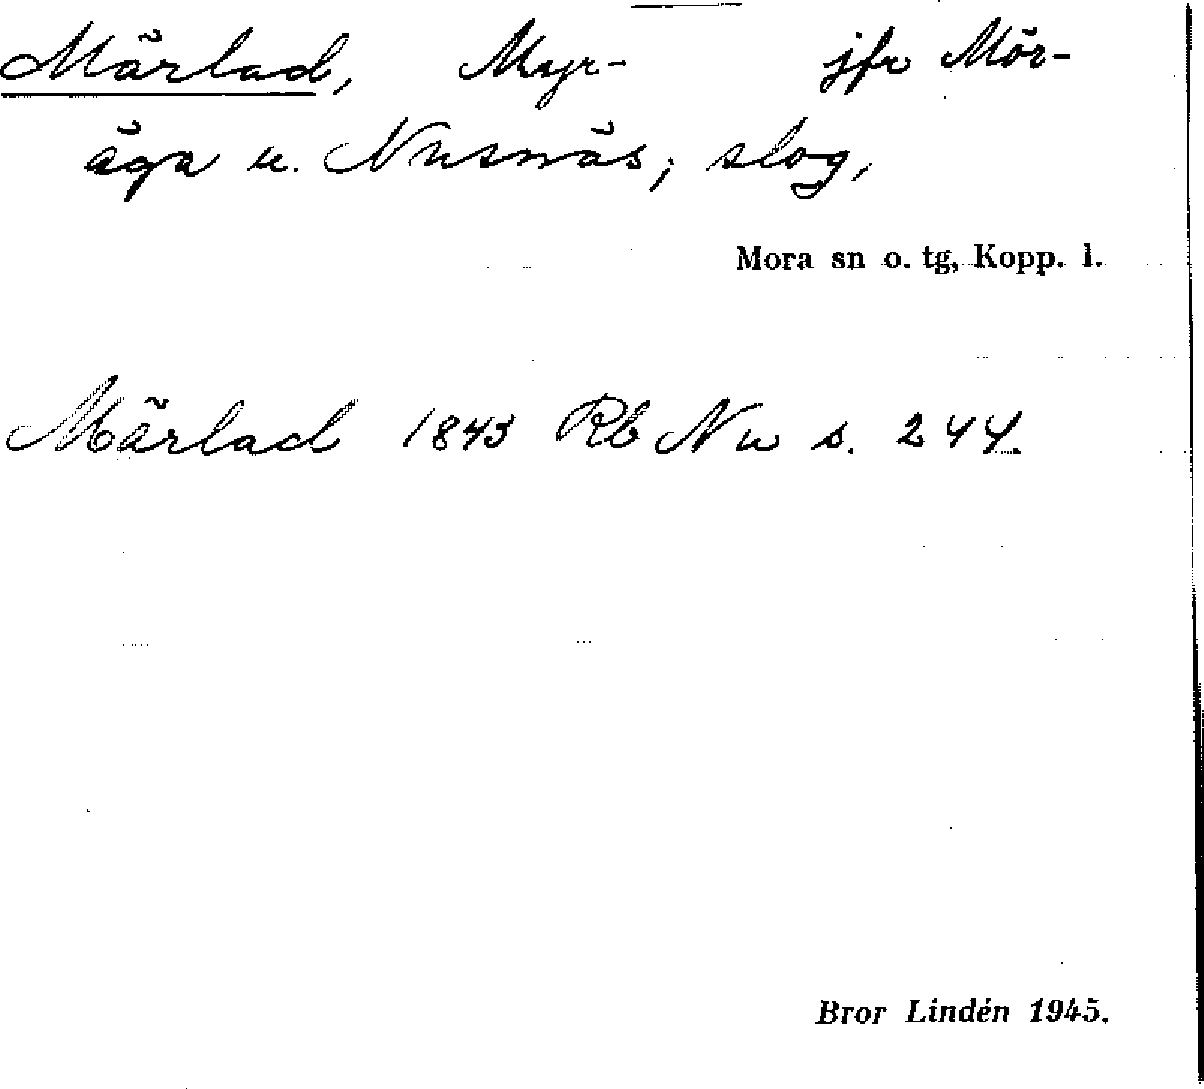 Märlad, Myr- jfr Mör-
äga u. Nusnäs; slog,
Mora sn o. tg, Kopp. l.
Märlad 1843 Rb Nu s. 244.
Bror Lindén 1945.